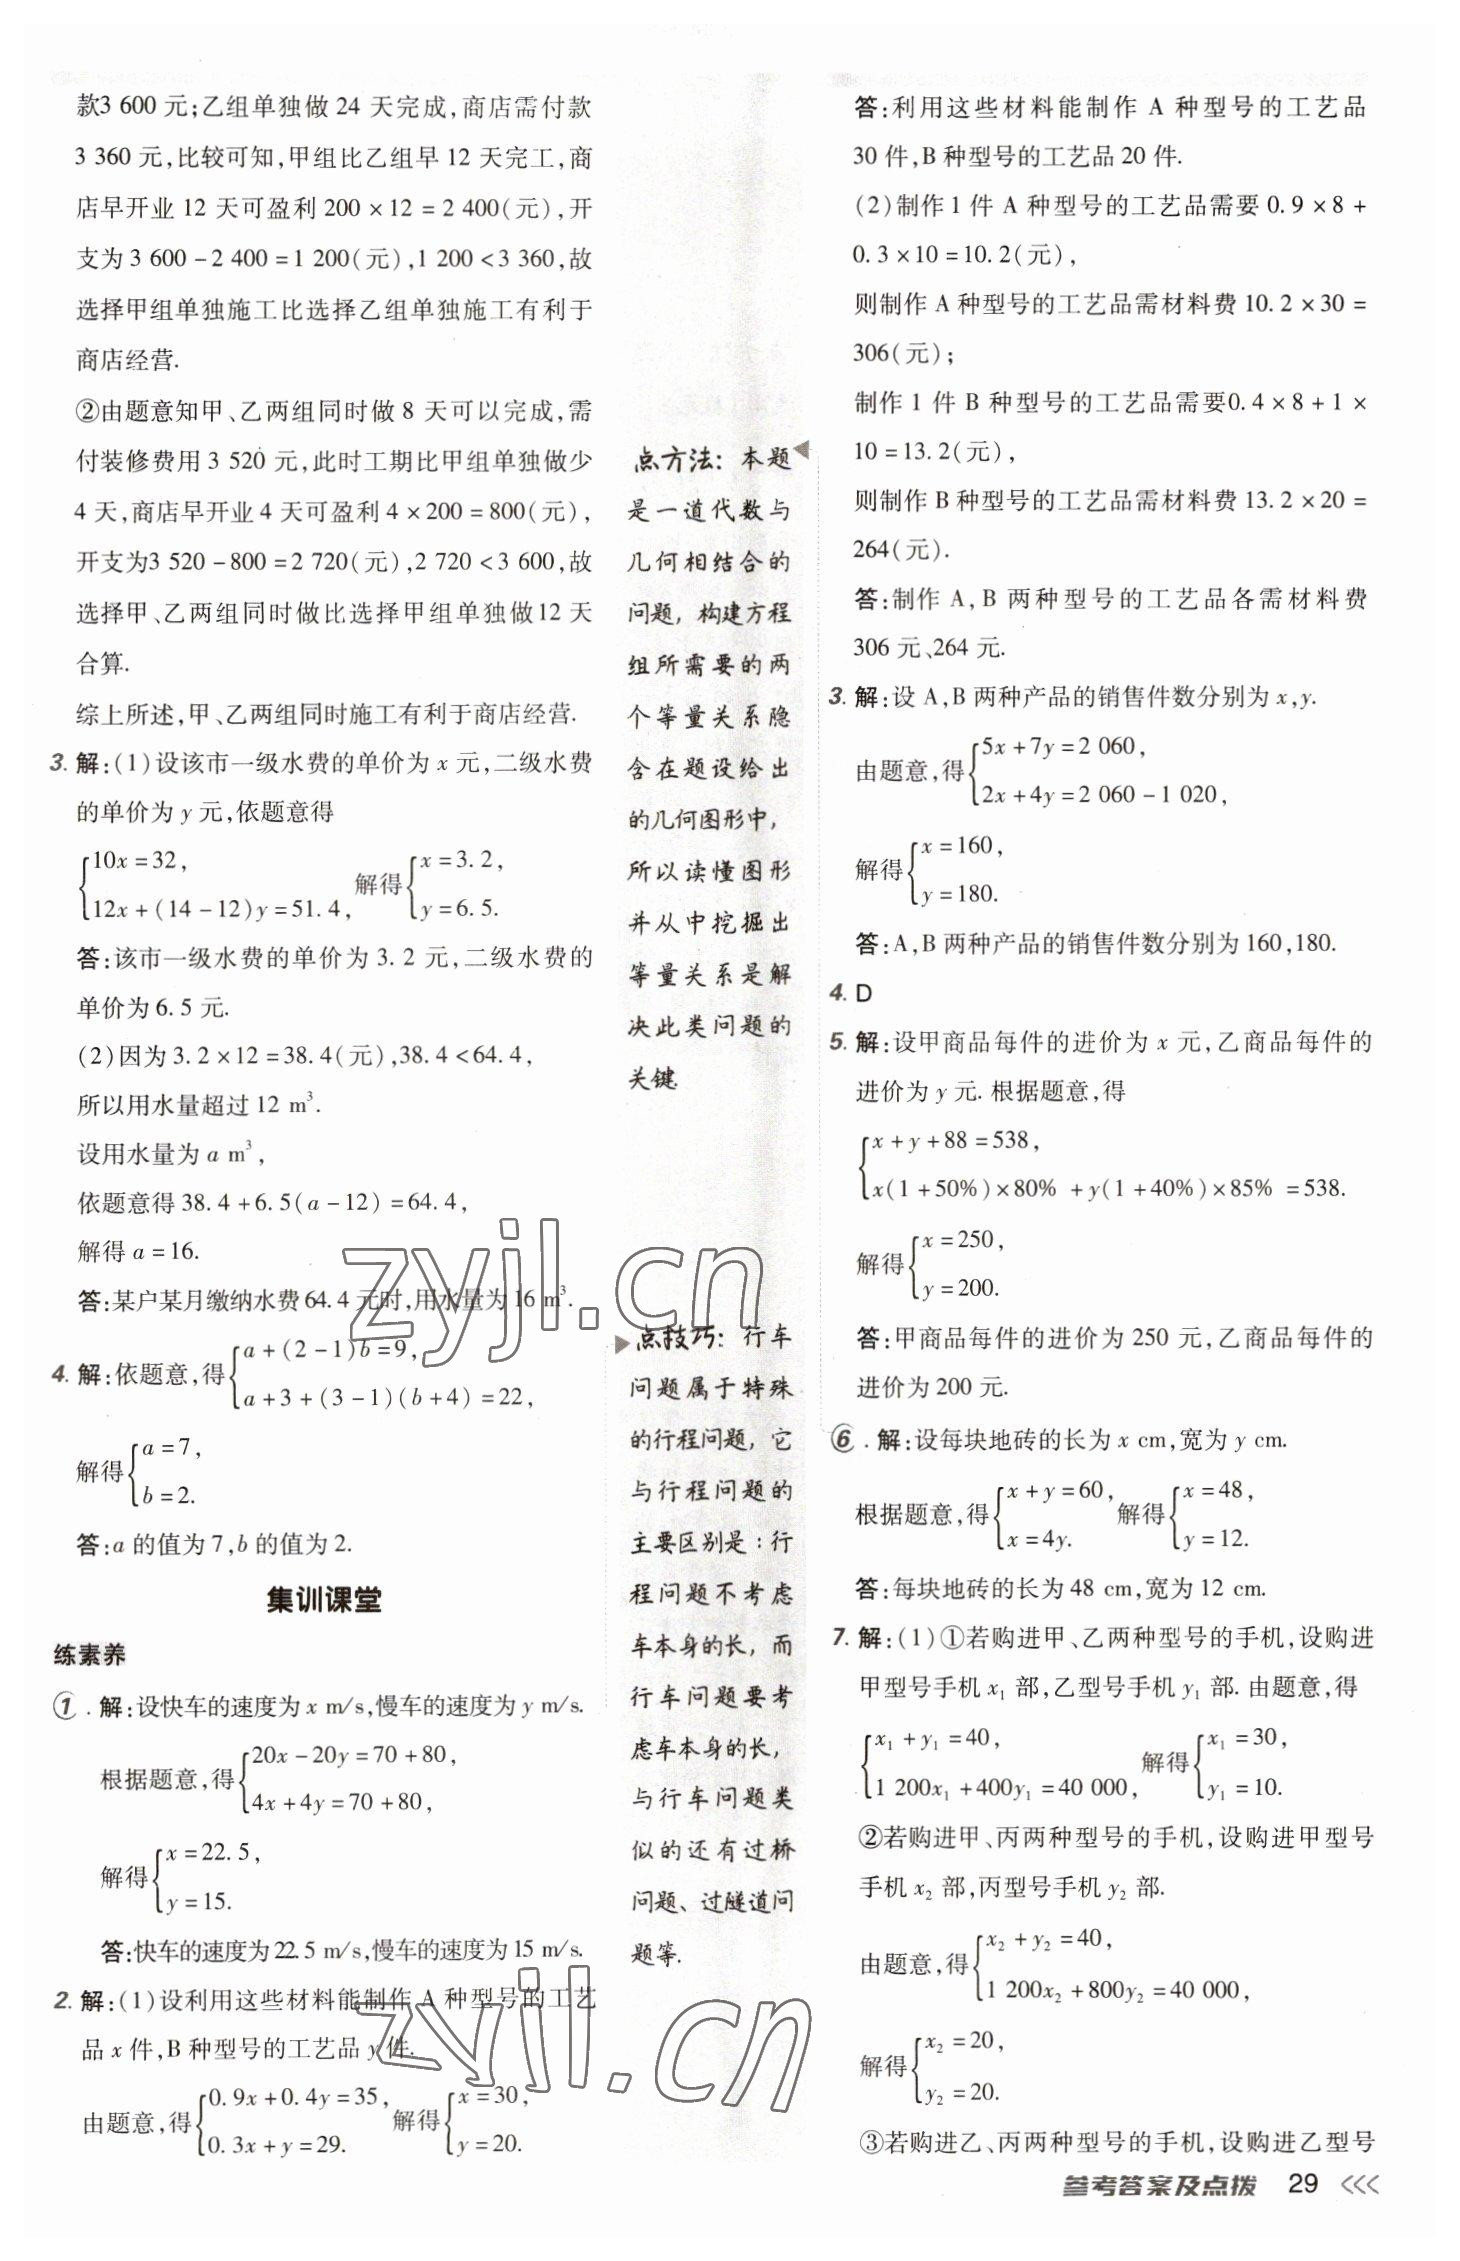 款3 600 元;乙组单独做 24 天完成,商店需付款
3 360 元,比较可知,甲组比乙组早 12 天完工,商
店早开业 12 天可盈利 200×12=2 400(元),开
支为 3 600-2 400=1 200(元),1 200<3 360,故
选择甲组单独施工比选择乙组单独施工有利于
商店经营.
②由题意知甲、乙两组同时做 8 天可以完成,需
付装修费用 3 520 元,此时工期比甲组单独做少
4 天,商店早开业 4 天可盈利 4×200=800(元),
开支为3 520-800=2 720(元),2 720<3 600,故
选择甲、乙两组同时做比选择甲组单独做12 天
合算.
综上所述,甲、乙两组同时施工有利于商店经营.
3. 解:(1)设该市一级水费的单价为 x 元,二级水费
的单价为 y 元,依题意得
{10x=32,
12x+(14-12)y=51.4, 解得{x=3.2,
y=6.5.
答:该市一级水费的单价为 3.2 元,二级水费的
单价为 6.5 元.
(2)因为 3.2×12=38.4(元),38.4<64.4,
所以用水量超过 12 m³.
设用水量为 a m³,
依题意得 38.4+6.5(a-12)=64.4,
解得 a=16.
答:某户某月缴纳水费 64.4 元时,用水量为 16 m³.
4. 解:依题意,得{a+(2-1)b=9,
a+3+(3-1)(b+4)=22,
解得{a=7,
b=2.
答:a 的值为 7,b 的值为 2.
集训课堂
练素养
①. 解:设快车的速度为 x m/s,慢车的速度为 y m/s.
根据题意,得{20x-20y=70+80,
4x+4y=70+80,
解得{x=22.5,
y=15.
答:快车的速度为 22.5 m/s,慢车的速度为 15 m/s.
2. 解:(1)设利用这些材料能制作 A 种型号的工艺
品 x 件,B 种型号的工艺品 y 件.
由题意,得{0.9x+0.4y=35,
0.3x+y=29. 解得{x=30,
y=20.
点方法:本题
是一道代数与
几何相结合的
问题,构建方程
组所需要的两
个等量关系隐
含在题设给出
的几何图形中,
所以读懂图形
并从中挖掘出
等量关系是解
决此类问题的
关键.
点技巧:行车
问题属于特殊
的行程问题,它
与行程问题的
主要区别是:行
程问题不考虑
车本身的长,而
行车问题要考
虑车本身的长,
与行车问题类
似的还有过桥
问题、过隧道问
题等.
答:利用这些材料能制作 A 种型号的工艺品
30 件,B 种型号的工艺品 20 件.
(2)制作 1 件 A 种型号的工艺品需要 0.9×8+
0.3×10=10.2(元),
则制作 A 种型号的工艺品需材料费 10.2×30=
306(元);
制作 1 件 B 种型号的工艺品需要0.4×8+1×
10=13.2(元),
则制作 B 种型号的工艺品需材料费 13.2×20=
264(元).
答:制作 A,B 两种型号的工艺品各需材料费
306 元、264 元.
3. 解:设 A,B 两种产品的销售件数分别为 x,y.
由题意,得{5x+7y=2 060,
2x+4y=2 060-1 020,
解得{x=160,
y=180.
答:A,B 两种产品的销售件数分别为 160,180.
4. D
5. 解:设甲商品每件的进价为 x 元,乙商品每件的
进价为 y 元. 根据题意,得
{x+y+88=538,
x(1+50%)×80% +y(1+40%)×85% =538.
解得{x=250,
y=200.
答:甲商品每件的进价为 250 元,乙商品每件的
进价为 200 元.
⑥. 解:设每块地砖的长为 x cm,宽为 y cm.
根据题意,得{x+y=60,
x=4y. 解得{x=48,
y=12.
答:每块地砖的长为 48 cm,宽为 12 cm.
7. 解:(1)①若购进甲、乙两种型号的手机,设购进
甲型号手机 x₁ 部,乙型号手机 y₁ 部. 由题意,得
{x₁+y₁=40,
1 200x₁+400y₁=40 000, 解得{x₁=30,
y₁=10.
②若购进甲、丙两种型号的手机,设购进甲型号
手机 x₂ 部,丙型号手机 y₂ 部.
由题意,得{x₂+y₂=40,
1 200x₂+800y₂=40 000,
解得{x₂=20,
y₂=20.
③若购进乙、丙两种型号的手机,设购进乙型号
参考答案及点拨 29 <<<
zyjl.cn
zyjl.cn